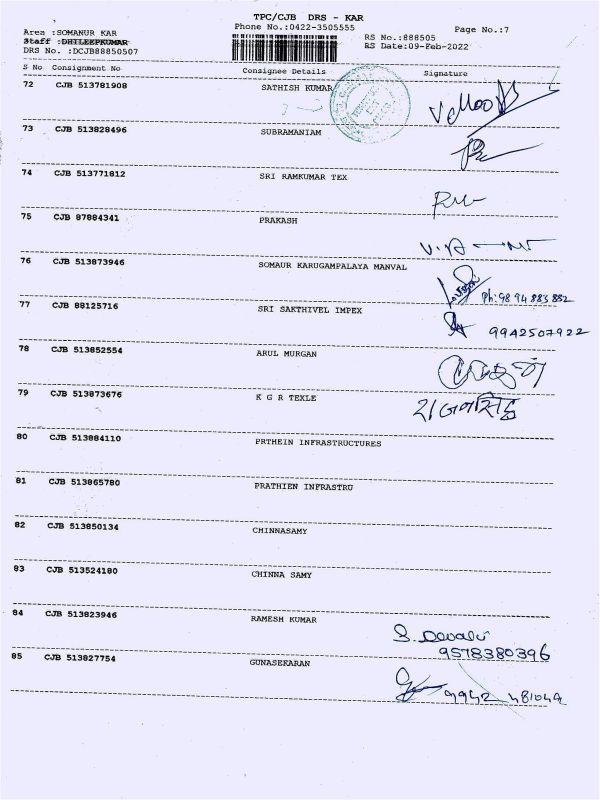 TPC/CJB DRS - KAR
Phone No.:0422-3505555
Page No.:7
Area :SOMANUR KAR
Staff :DHILEEPKUMAR
DRS No. :DCJB88850507
RS No.:888505
RS Date:09-Feb-2022
S No Consignment No Consignee Details Signature
72 CJB 513781908 SATHISH KUMAR
73 CJB 513828496 SUBRAMANIAM
74 CJB 513771812 SRI RAMKUMAR TEX
75 CJB 87884341 PRAKASH
76 CJB 513873946 SOMAUR KARUGAMPALAYA MANVAL
Ph:9894883882
77 CJB 88125716 SRI SAKTHIVEL IMPEX
9942507922
78 CJB 513852554 ARUL MURGAN
79 CJB 513873676 K G R TEXLE
80 CJB 513884110 PRTHEIN INFRASTRUCTURES
81 CJB 513865780 PRATHIEN INFRASTRU
82 CJB 513850134 CHINNASAMY
83 CJB 513524180 CHINNA SAMY
84 CJB 513823946 RAMESH KUMAR
9578380396
85 CJB 513827754 GUNASEKARAN
9942 481049